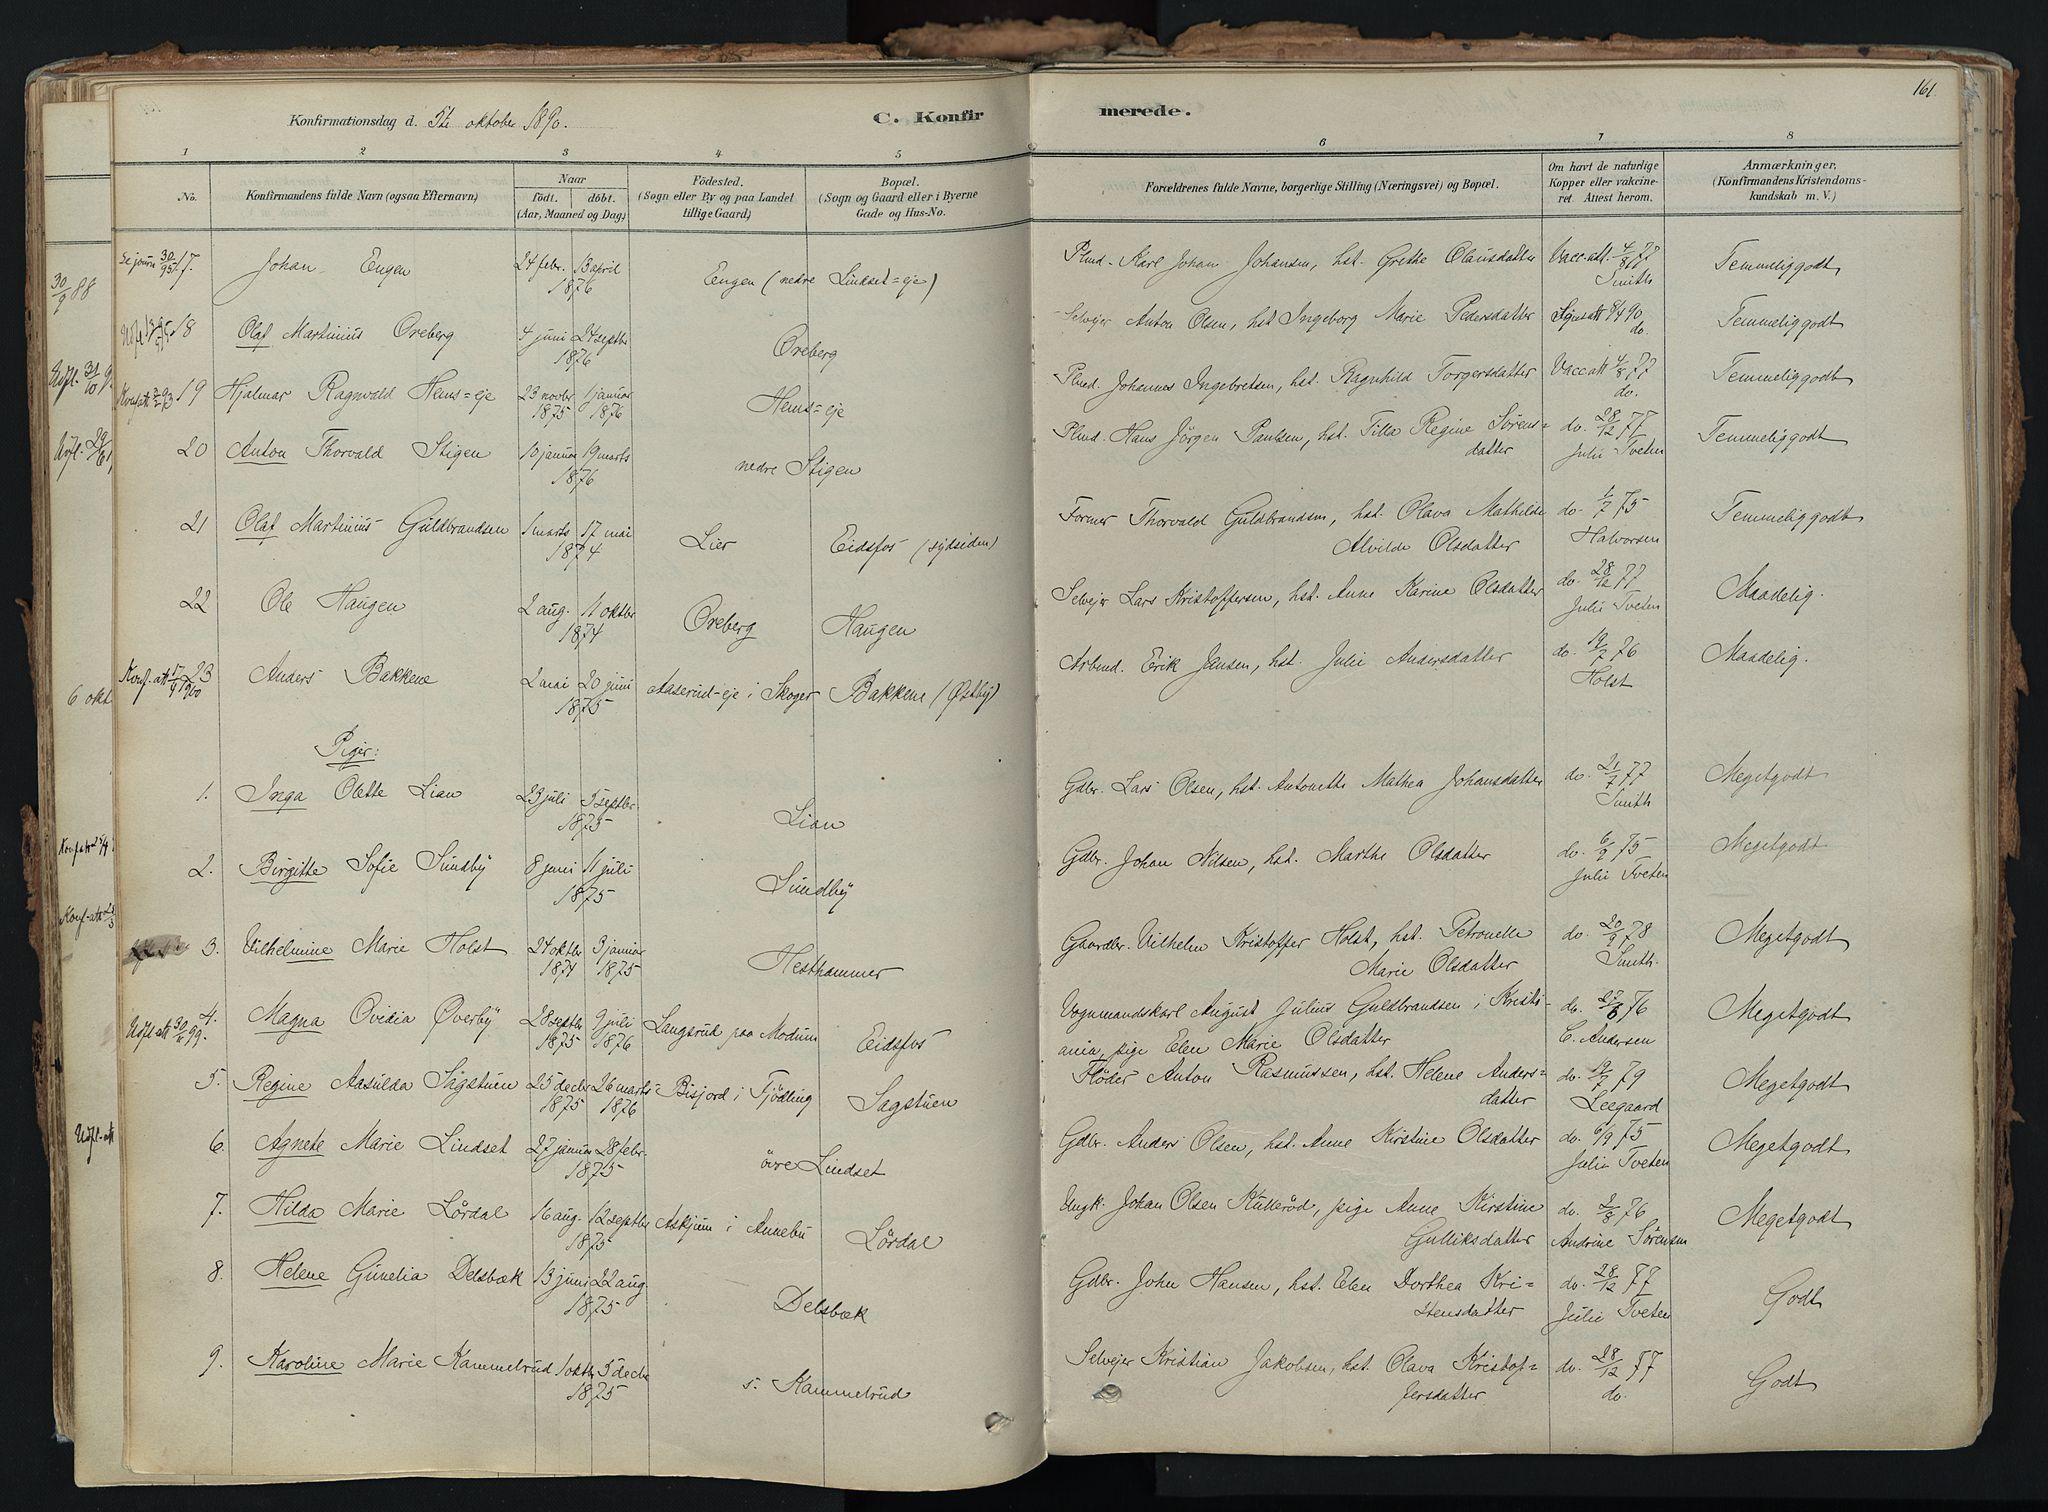 161.
Konfirmationsdag d. 5te oktober 1890.
C. Konfirmerede.
1 2 3 4 5 6 7 8
No.
Konfirmandens fulde Navn (ogsaa Efternavn)
Naar
födt. döbt.
(Aar, Maaned og Dag)
Födested.
(Sogn eller By og paa Landet
tillige Gaard)
Bopæl.
(Sogn og Gaard eller i Byerne
Gade og Hus-No.
Forældrenes fulde Navne, borgerlige Stilling (Næringsvei) og Bopæl.
Om havt de naturlige
Kopper eller vakcine-
ret. Attest herom.
Anmærkninger.
(Konfirmandens Kristendoms-
kundskab m. V.)
30/9 88
6 okt
17. Johan Engen 24 febr. 13 april 1876 Engen (nedre Lindset=eje) Plmd. Karl Johan Johansen, hst. Grethe Olausdatter Vacc.att. 4/8 77 Smith Temmeliggodt
18 Olaf Martinius Oreberg 4 juni 24 septbr 1876 Oreberg Selvejer Anton Olsen, hst Ingeborg Marie Pedersdatter 8/4 90 do. Temmeliggodt
19 Hjalmar Ragnvald Hems=eje 23 novbr 1875 1 januar 1876 Hems=eje Plmd. Johannes Ingebretsen, hst. Ragnhild Torgersdatter Vacc att 4/8 77 do. Temmeliggodt
20 Anton Thorvald Stigen 10 januar 19 marts 1876 nedre Stigen Plmd. Hans Jörgen Paulsen, hst. Tilla Regine Sörens=
datter do. 28/12 77 Julie Tveten Temmeliggodt
21 Olaf Martinius Guldbrandsen 1 marts 17 mai 1874 Lier Eidsfos (sydsiden) Former Thorvald Guldbrandsen, hst. Olava Mathilde
Alvilde Olsdatter do. 1/7 75 Halvorsen Temmeliggodt
22 Ole Haugen 2 aug. 11 oktbr 1874 Oreberg Haugen Selvejer Lars Kristoffersen, hst. Anne Karine Olsdatter do. 28/12 77 Julie Tveten Maadelig.
Konf.-att 17/9 1900 23 Anders Bakkene 2 mai 20 juni 1875 Aaserud-eje i Skoger Bakkene (Østby) Arbmd. Erik Jansen, hst. Julie Andersdatter do. 19/7 76 Holst Maadelig.
Piger:
1. Inga Olette Lian 23 juli 5 septbr 1875 Lian Gdbr. Lars Olsen, hst. Antonette Mathea Johansdatter do. 21/7 77 Smith Megetgodt
2. Birgitte Sofie Sundby 8 juni 11 juli 1875 Sundby Gdbr. Johan Nilsen, hst. Marthe Olsdatter do. 6/9 75 Julie Tveten Megetgodt
3. Vilhelmine Marie Holst 24 oktbr 1874 3 januar 1875 Hesthammer Gaardbr. Vilhelm Kristoffer Holst, hst. Petronelle
Marie Olsdatter do. 20/9 78 Smith. Megetgodt
Udfl-att 99. 4. Magna Ovidia Øverby 28 septbr 1875 9 juli 1876 Langsrud paa Modum Eidsfos Vognmandskarl August Julius Guldbrandsen i Kristi-
ania, pige Elen Marie Olsdatter do. 27/6 76 C. Andersen Megetgodt
5. Regine Aasulda Sagstuen 25 decbr 1875 26 marts 1876 Bisjord i Tjödling Sagstuen Flöder Anton Rasmussen, hst. Helene Anders=
datter do. 19/7 79 Leegaard Megetgodt
6. Agnete Marie Lindset 27 januar 28 febr. 1875 övre Lindset Gdbr. Anders Olsen, hst. Anne Kirstine Olsdatter do. 6/9 75 Julie Tveten Megetgodt
7. Hilda Marie Lördal 16 aug. 12 septbr 1875 Askjum i Annebu Lördal Ungk. Johan Olsen Kulleröd, pige Anne Kirstine
Gulliksdatter do. 2/8 76 Andrine Sörensen Megetgodt
8. Helene Gunelia Delsbæk 13 juni 22 aug. 1875 Delsbæk Gdbr. John Hansen, hst. Elen Dorthea Kri=
stensdatter do. 28/12 77 Julie Tveten Godt
9. Karoline Marie Kammelrud 1 oktbr 5 decbr 1875 s. Kammelrud Selvejer Kristian Jakobsen, hst. Olava Kristof=
fersdatter do. 28/12 77 do. Godt